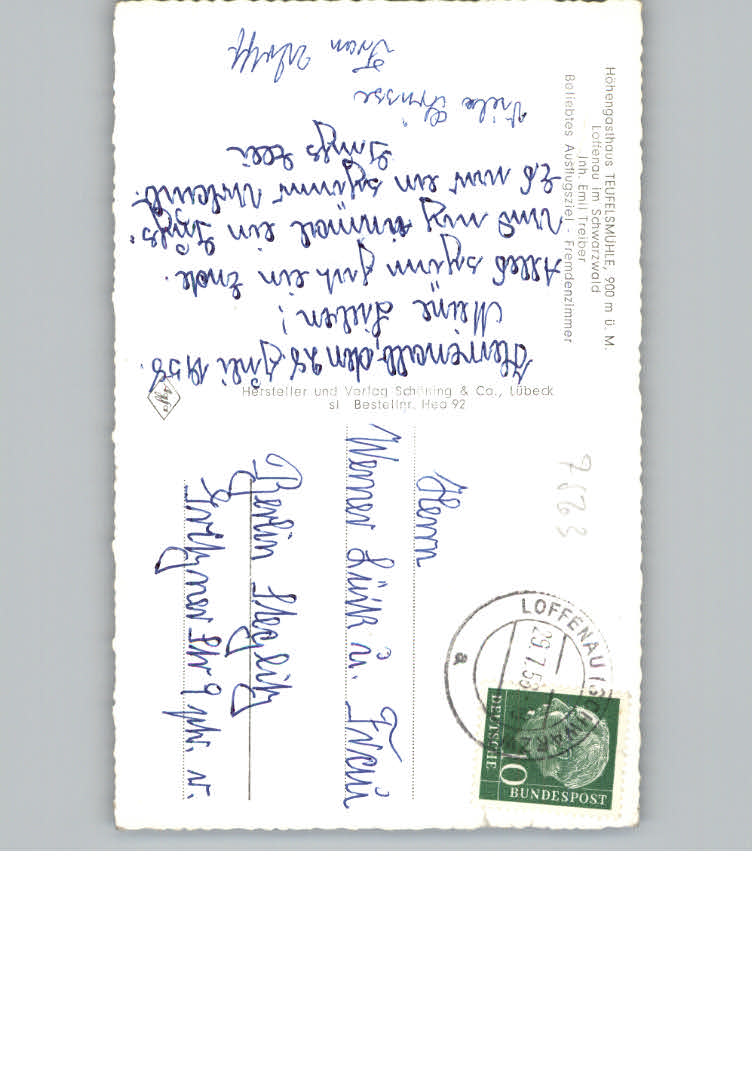 Höhengasthaus TEUFELSMÜHLE, 900 m ü. M.
Loffenau im Schwarzwald
Inh. Emil Treiber
Beliebtes Ausflugsziel - Fremdenzimmer
Herrenalb, den 28 Juli 1958.
Meine Lieben!
Alles schöne hat ein Ende.
Und mag einmal ein
Es war ein schöner Urlaub.
Viele Grüsse
Frau Wolff
Hersteller und Verlag Schöning & Co., Lübeck
sl Bestellnr. Hea 92
Agfa
Herrn
Werner Lüth u. Frau
Berlin Steglitz
Str 9 ptr. r.
7563
LOFFENAU (SCHWARZW
29.7.58
a
DEUTSCHE
BUNDESPOST
10